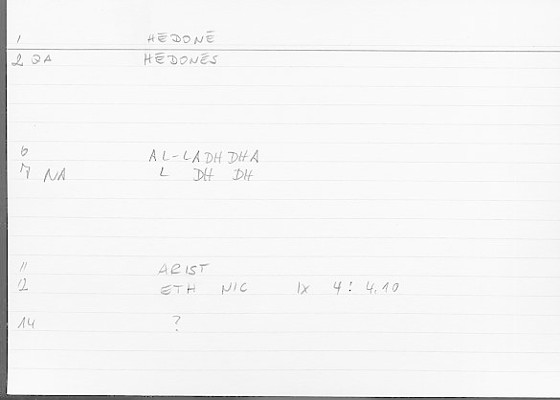 1 HĒDONĒ
2 2A HĒDONĒS
6 AL-LADHDHA
7 NA L DH DH
11 ARIST
12 ETH NIC IX 4: 4.10
14 ?